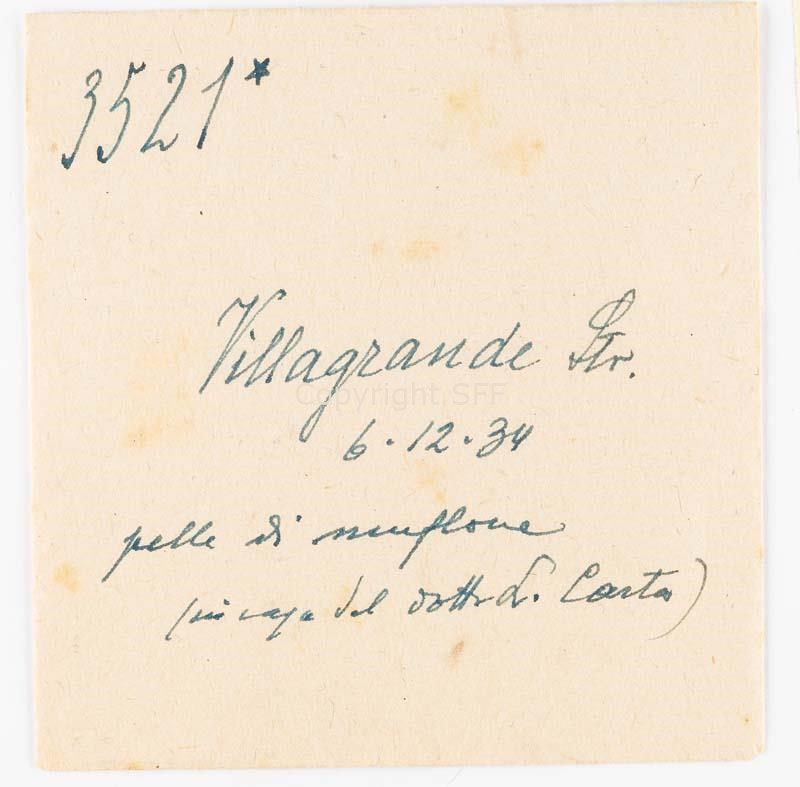 3521*
Villagrande Str.
Copyright SFF
6.12.34
pelle di muflone
(in casa del dott. L. Carta)